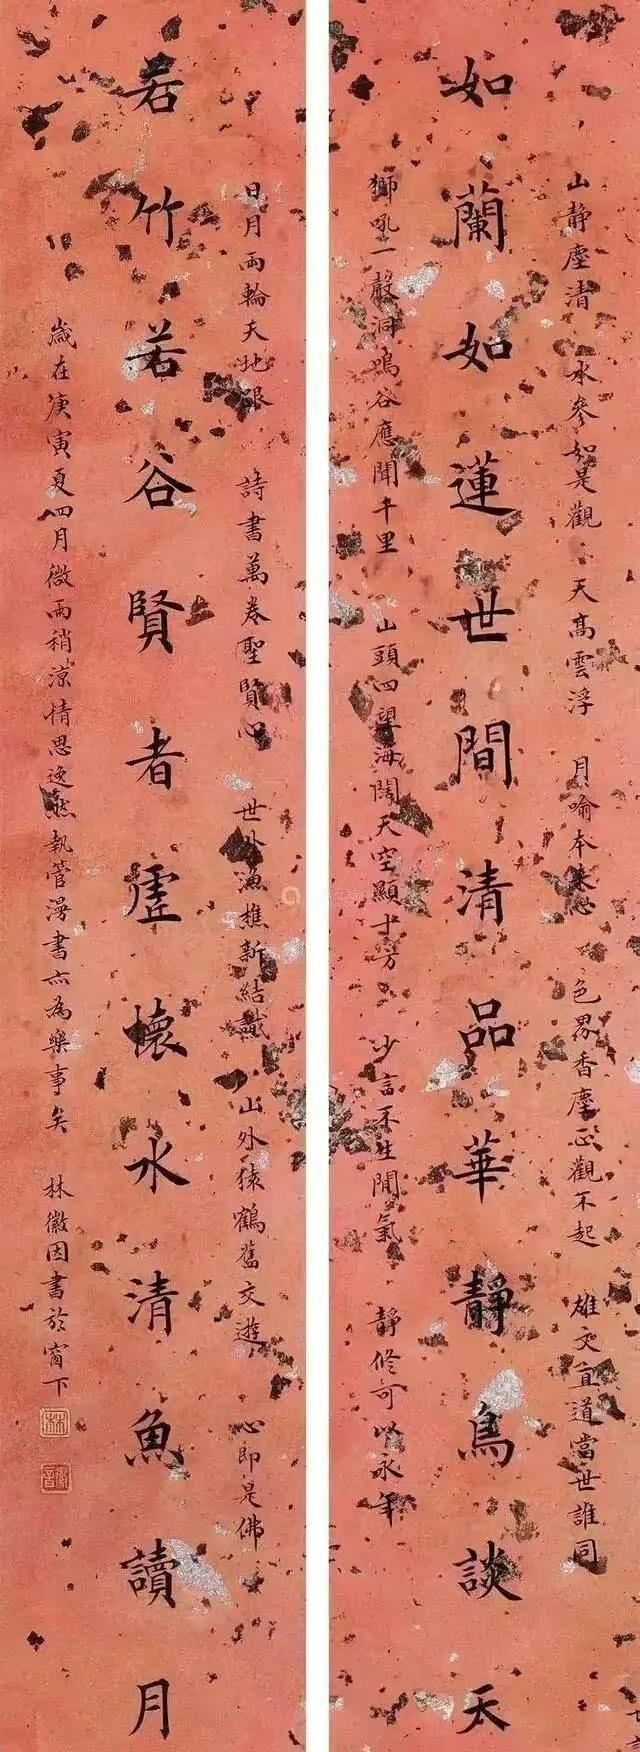 山靜塵清　水參如是觀　天高雲浮　月喻本來心　色界香塵正觀不起　雄文直道當世誰同
如蘭如蓮世間清品華靜鳥談天
獅吼一聲洞鳴谷應聞千里　山頭四望海闊天空顯十方　少言不生閒氣　靜修可以永年
日月兩輪天地眼　詩書萬卷聖賢心　世外漁樵新結識　山外猿鶴舊交遊　心即是佛
若竹若谷賢者虛懷水清魚讀月
歲在庚寅夏四月微雨稍涼情思逸然執管漫書亦為樂事矣　林徽因書於窗下
林
徽音